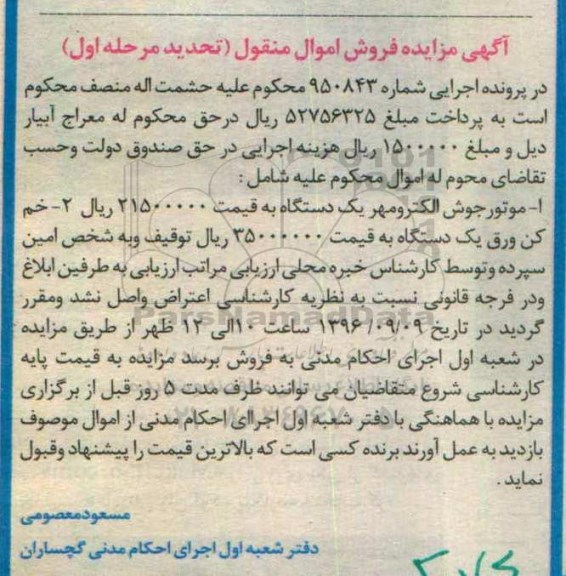 آگهی مزایده فروش اموال منقول (تحدید مرحله اول)
در پرونده اجرایی شماره ۹۵۰۸۴۳ محکوم علیه حشمت اله منصف محکوم
است به پرداخت مبلغ ۵۲۷۵۶۳۲۵ ریال درحق محکوم له معراج آبیار
دیل و مبلغ ۱۵۰۰۰۰۰ ریال هزینه اجرایی در حق صندوق دولت وحسب
تقاضای محوم له اموال محکوم علیه شامل :
۱-موتورجوش الکترومهر یک دستگاه به قیمت ۲۱۵۰۰۰۰۰ ریال ۲-خم
کن ورق یک دستگاه به قیمت ۳۵۰۰۰۰۰۰ ریال توقیف وبه شخص امین
سپرده وتوسط کارشناس خبره محلی ارزیابی مراتب ارزیابی به طرفین ابلاغ
ودر فرجه قانونی نسبت به نظریه کارشناسی اعتراض واصل نشد ومقرر
گردید در تاریخ ۱۳۹۶/۰۹/۰۹ ساعت ۱۰الی ۱۲ ظهر از طریق مزایده
در شعبه اول اجرای احکام مدنی به فروش برسد مزایده به قیمت پایه
کارشناسی شروع متقاضیان می توانند ظرف مدت ۵ روز قبل از برگزاری
مزایده با هماهنگی با دفتر شعبه اول اجراای احکام مدنی از اموال موصوف
بازدید به عمل آورند برنده کسی است که بالاترین قیمت را پیشنهاد وقبول
نماید .
مسعودمعصومی
دفتر شعبه اول اجرای احکام مدنی گچساران
ParsNamadData